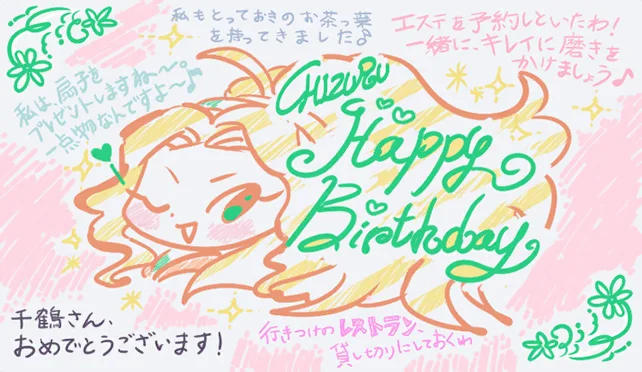 私もとっておきのお茶っ葉
を持ってきました♪
エステを予約しといたわ!
一緒に、キレイに磨きを
かけましょう♪
私は、扇子を
プレゼントしますね〜。
一点物なんですよ〜♪
CHIZURU
Happy
Birthday
千鶴さん、
おめでとうございます!
行きつけのレストラン、
貸し切りにしておくわ